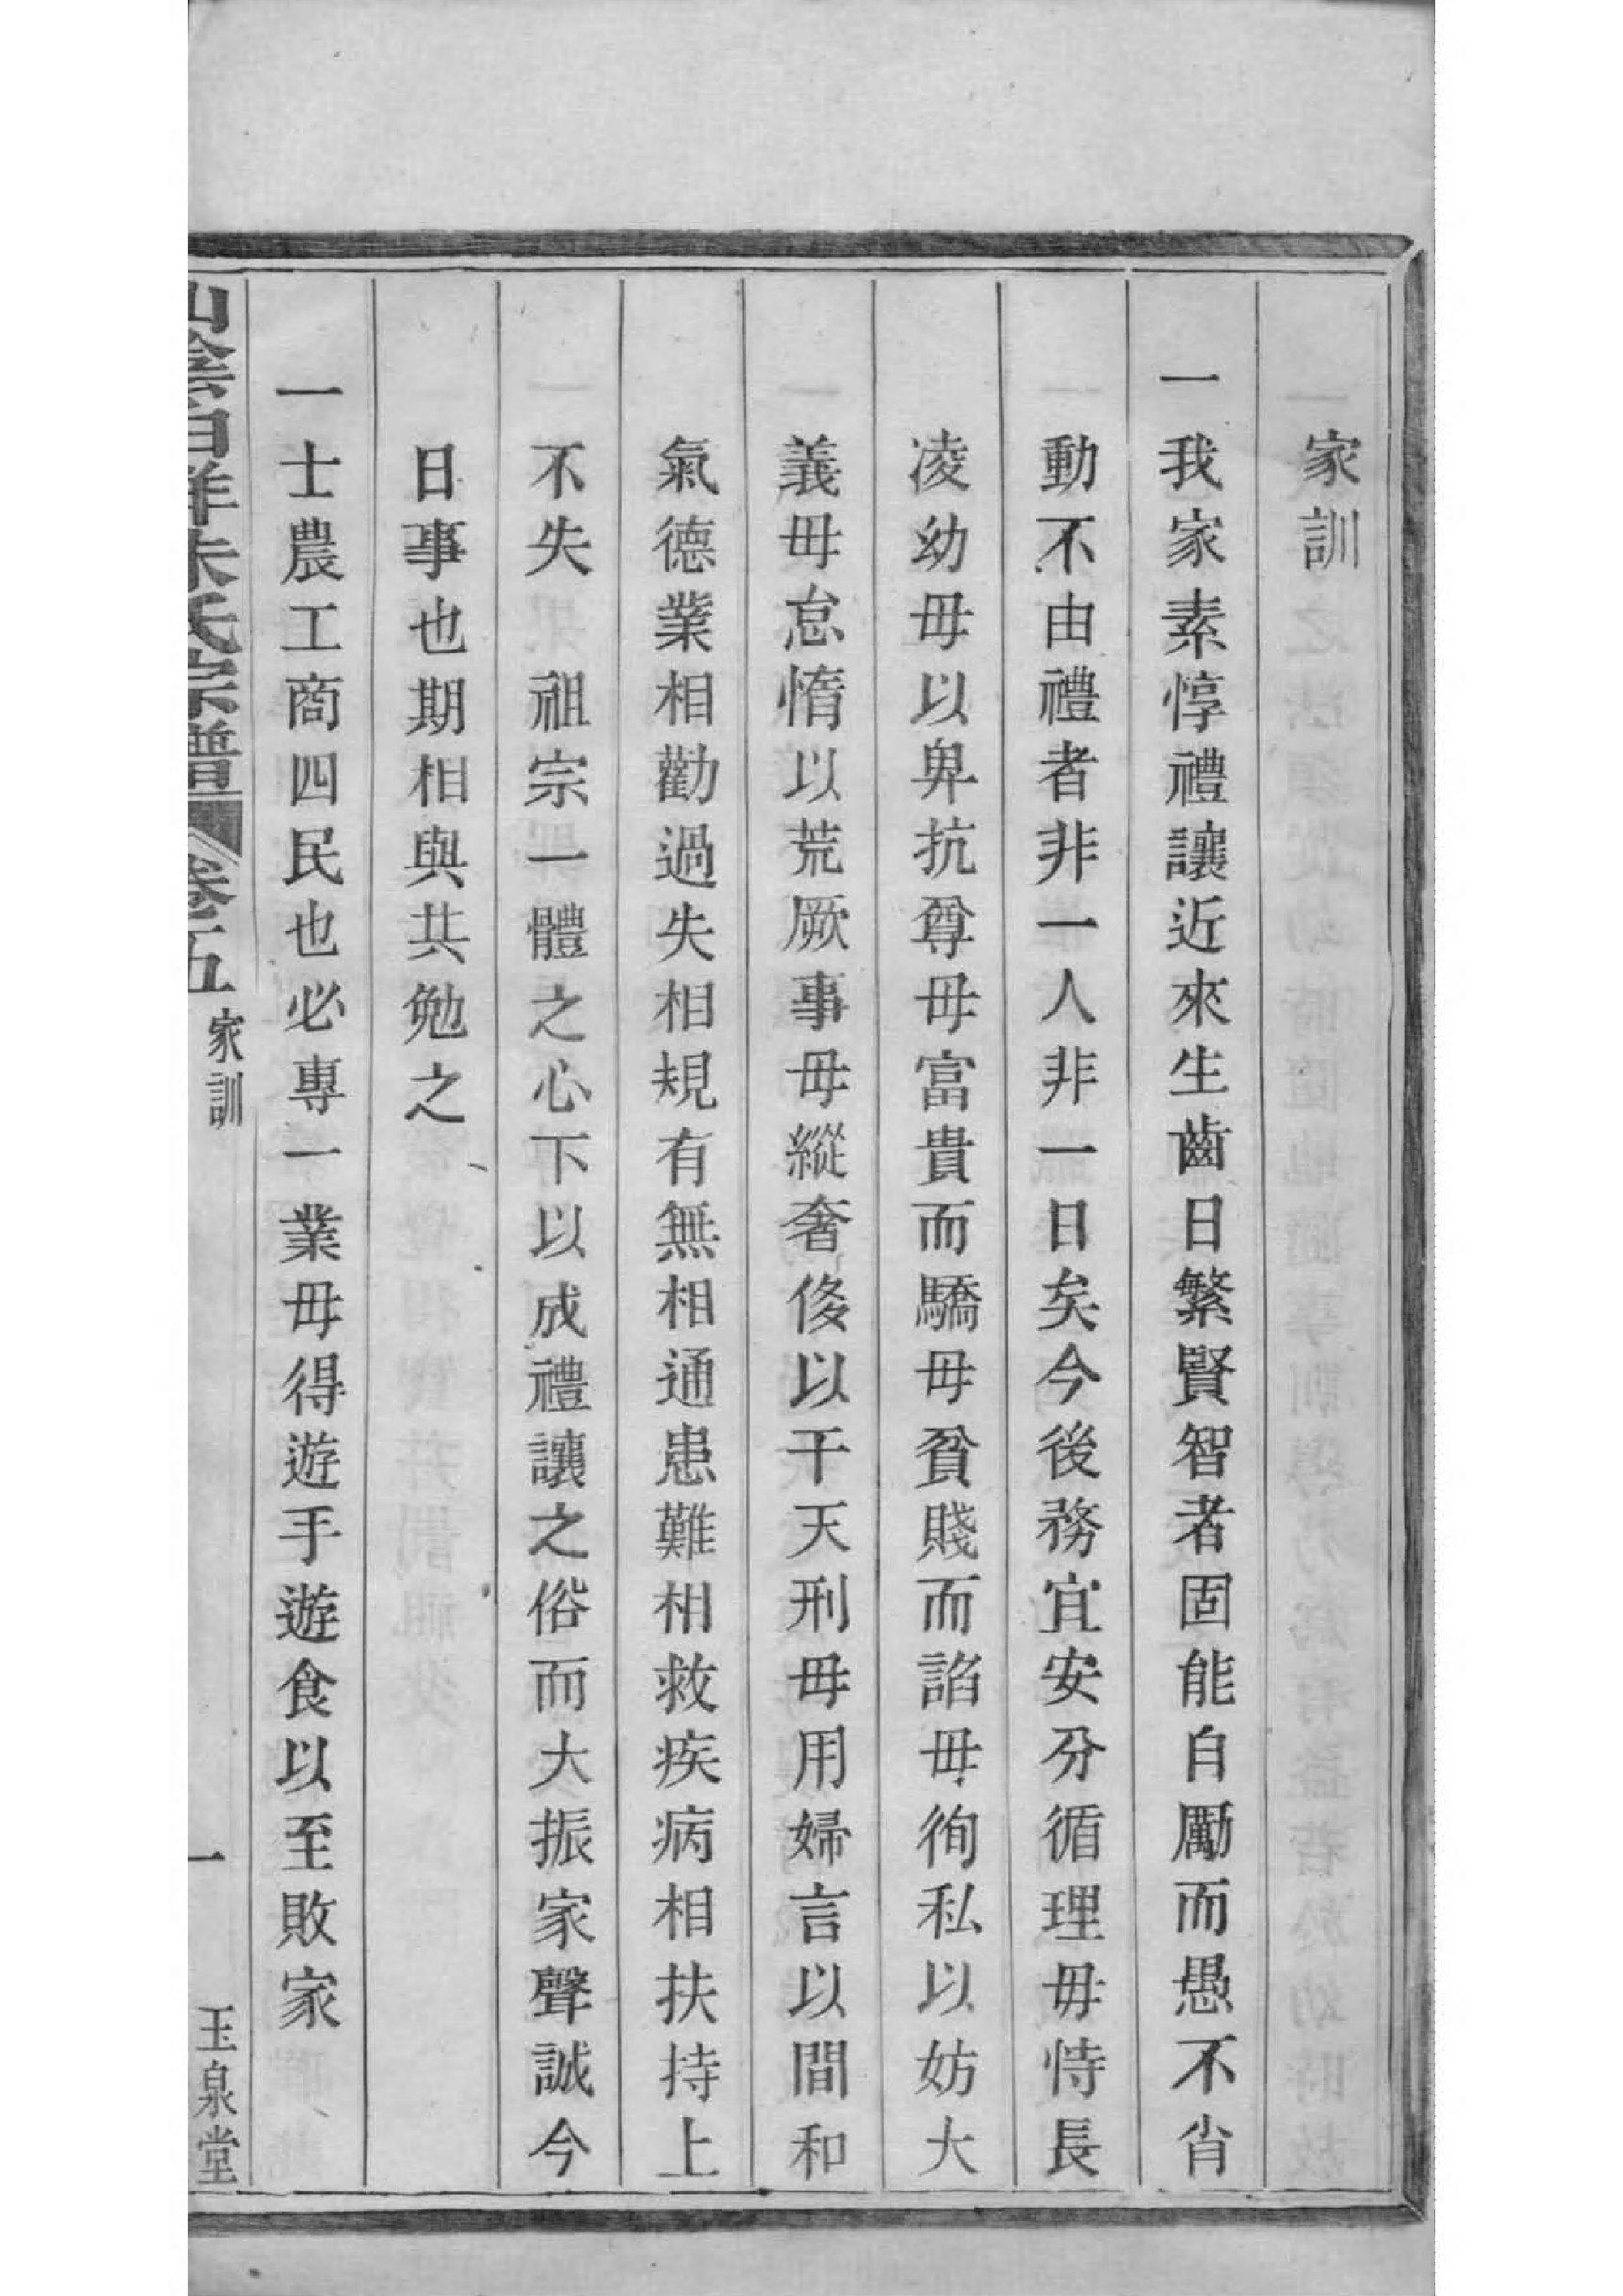 家訓
一我家素惇禮讓近來生齒日繁賢智者固能自勵而愚不肖
動不由禮者非一人非一日矣今後務宜安分循理毋恃長
凌幼毋以卑抗尊毋富貴而驕毋貧賤而諂毋徇私以妨大
義毋怠惰以荒厥事毋縱奢侈以干天刑毋用婦言以間和
氣德業相勸過失相規有無相通患難相救疾病相扶持上
不失　祖宗一體之心下以成禮讓之俗而大振家聲誠今
日事也期相與共勉之
一士農工商四民也必專一業毋得遊手遊食以至敗家
山陰白洋朱氏宗譜　卷五　家訓　一　玉泉堂